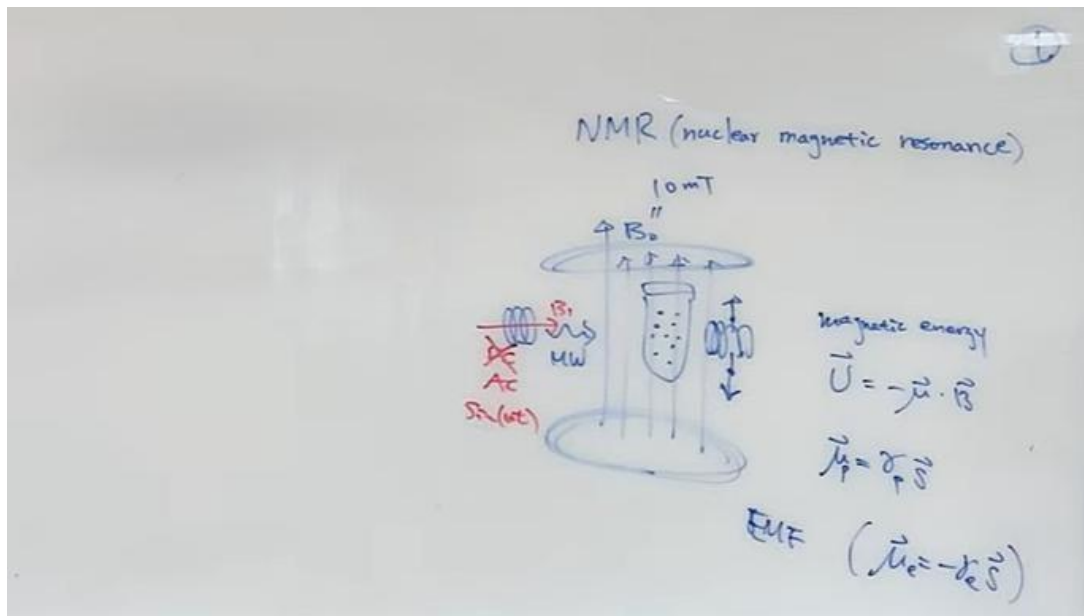 1
NMR (nuclear magnetic resonance)
10mT
"
B₀
B₁
MW
DC
AC
Sin(ωt)
magnetic energy
U⃗ = -μ⃗ · B⃗
μ⃗ₚ = γₚ S⃗
EMF
(μ⃗ₑ = -γₑ S⃗)